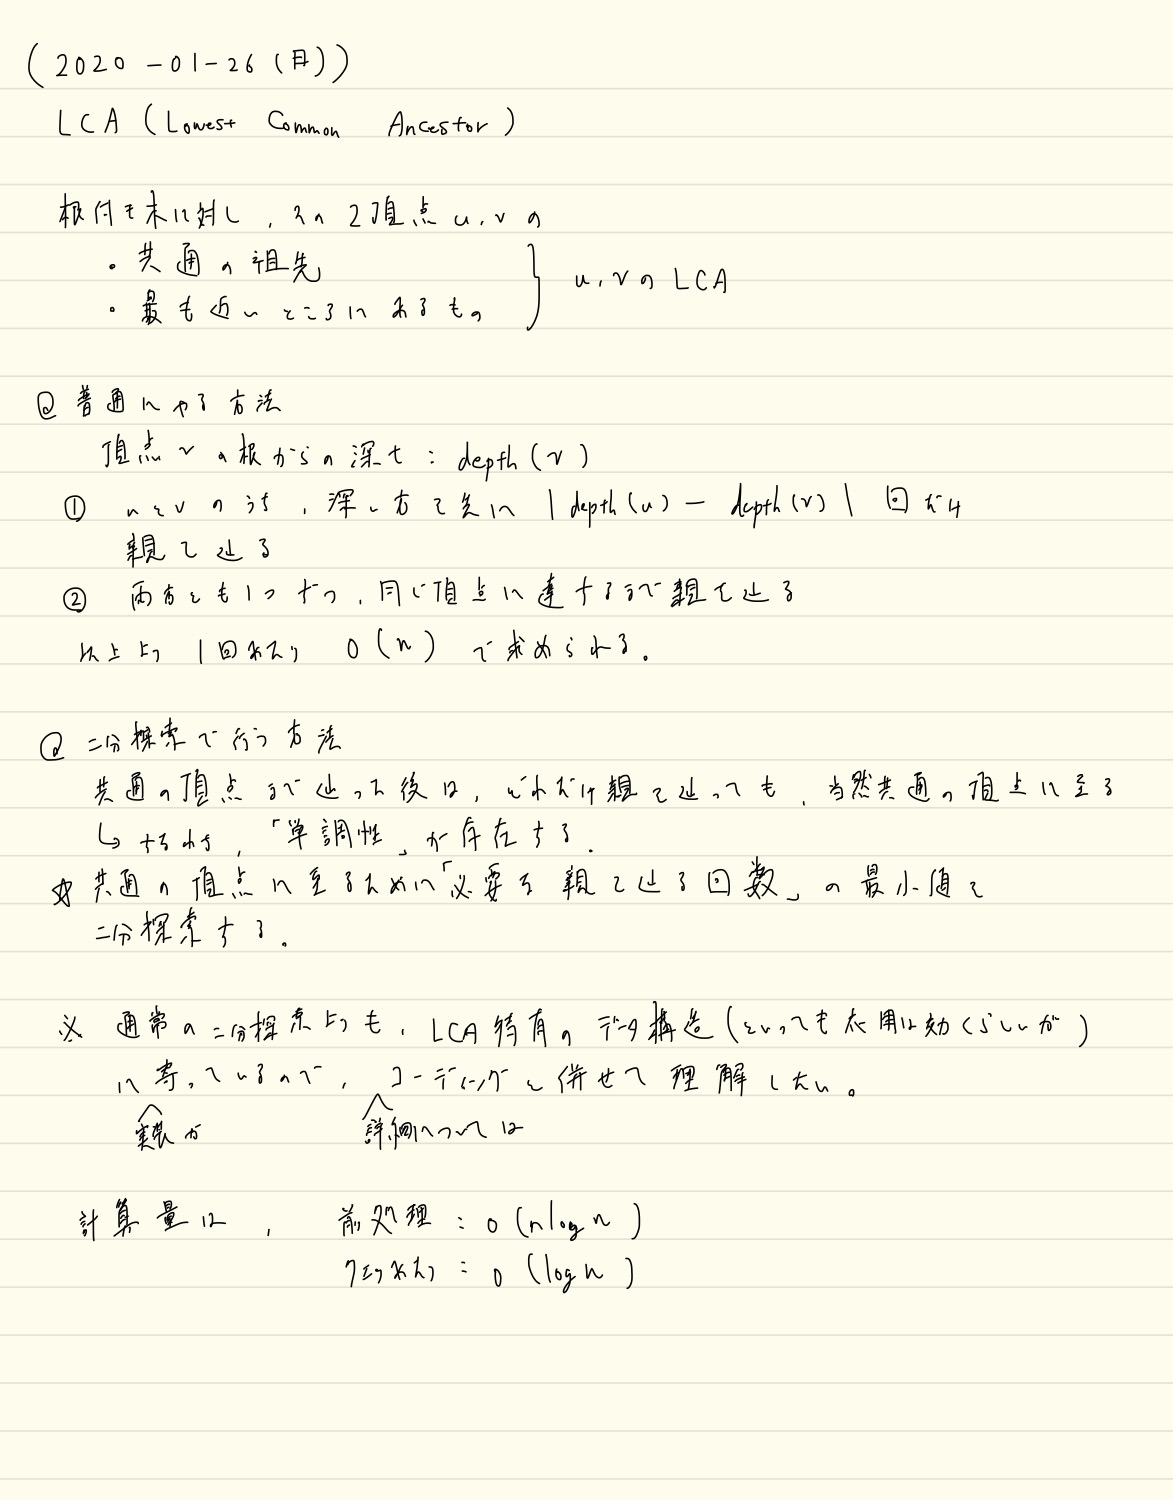 (2020-01-26(日))
LCA (Lowest Common Ancestor)
根付き木に対し、その2頂点u,vの
・共通の祖先
・最も近いところにあるもの
u,vのLCA
@ 普通にやる方法
頂点vの根からの深さ: depth(v)
① uとvのうち、深い方を先に |depth(u) - depth(v)| 回だけ
親を辿る
② 両方とも1つずつ、同じ頂点に達するまで親を辿る
以上より 1回あたり O(n) で求められる。
@ 二分探索で行う方法
共通の頂点まで辿った後は、どれだけ親を辿っても、当然共通の頂点に至る
↳ すなわち、「単調性」が存在する.
☆ 共通の頂点に至るために「必要な親を辿る回数」の最小値を
二分探索する.
※ 通常の二分探索よりも、LCA特有のデータ構造(といっても応用は効くらしいが)
に寄っているので、コーディングと併せて理解したい。
実装が
詳細については
計算量は、 前処理: O(nlogn)
クエリあたり: O(logn)